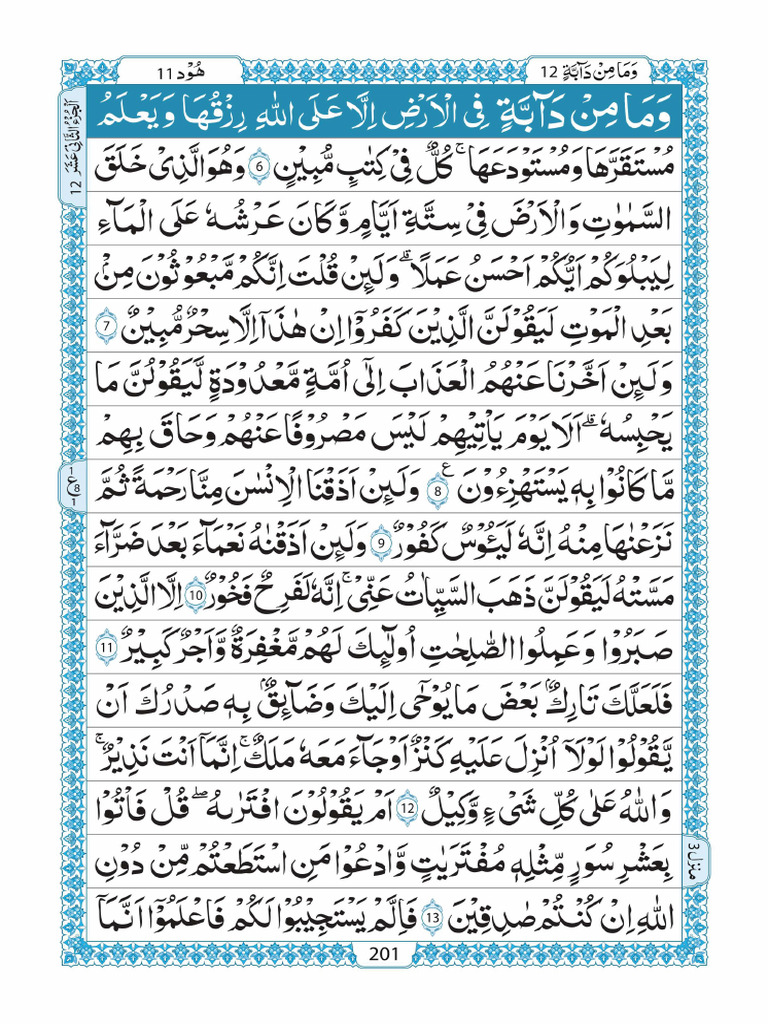 هُوْد 11
وَمَا مِنْ دَآبَّةٍ 12
اَلْجُزْءُ الثَّانِیْ عَشَرَ 12
وَمَا مِنْ دَآبَّةٍ فِی الْاَرْضِ اِلَّا عَلَی اللّٰهِ رِزْقُهَا وَیَعْلَمُ
مُسْتَقَرَّهَا وَمُسْتَوْدَعَهَا ۚ كُلٌّ فِیْ كِتٰبٍ مُّبِیْنٍ 6 وَهُوَ الَّذِیْ خَلَقَ
السَّمٰوٰتِ وَالْاَرْضَ فِیْ سِتَّةِ اَیَّامٍ وَّكَانَ عَرْشُهٗ عَلَی الْمَآءِ
لِیَبْلُوَكُمْ اَیُّكُمْ اَحْسَنُ عَمَلًا ۗ وَلَىِٕنْ قُلْتَ اِنَّكُمْ مَّبْعُوْثُوْنَ مِنْۢ
بَعْدِ الْمَوْتِ لَیَقُوْلَنَّ الَّذِیْنَ كَفَرُوْۤا اِنْ هٰذَاۤ اِلَّا سِحْرٌ مُّبِیْنٌ 7
وَلَىِٕنْ اَخَّرْنَا عَنْهُمُ الْعَذَابَ اِلٰۤی اُمَّةٍ مَّعْدُوْدَةٍ لَّیَقُوْلُنَّ مَا
یَحْبِسُهٗ ۗ اَلَا یَوْمَ یَاْتِیْهِمْ لَیْسَ مَصْرُوْفًا عَنْهُمْ وَحَاقَ بِهِمْ
مَّا كَانُوْا بِهٖ یَسْتَهْزِءُوْنَ 8 ع وَلَىِٕنْ اَذَقْنَا الْاِنْسٰنَ مِنَّا رَحْمَةً ثُمَّ
ع 8
نَزَعْنٰهَا مِنْهُ اِنَّهٗ لَیَـُٔوْسٌ كَفُوْرٌ 9 وَلَىِٕنْ اَذَقْنٰهُ نَعْمَآءَ بَعْدَ ضَرَّآءَ
مَسَّتْهُ لَیَقُوْلَنَّ ذَهَبَ السَّیِّاٰتُ عَنِّیْ ۚ اِنَّهٗ لَفَرِحٌ فَخُوْرٌ 10 اِلَّا الَّذِیْنَ
صَبَرُوْا وَعَمِلُوا الصّٰلِحٰتِ اُولٰٓىِٕكَ لَهُمْ مَّغْفِرَةٌ وَّاَجْرٌ كَبِیْرٌ 11
فَلَعَلَّكَ تَارِكٌۢ بَعْضَ مَا یُوْحٰۤی اِلَیْكَ وَضَآىِٕقٌۢ بِهٖ صَدْرُكَ اَنْ
یَّقُوْلُوْا لَوْلَاۤ اُنْزِلَ عَلَیْهِ كَنْزٌ اَوْ جَآءَ مَعَهٗ مَلَكٌ ۚ اِنَّمَاۤ اَنْتَ نَذِیْرٌ ۚ
وَاللّٰهُ عَلٰی كُلِّ شَیْءٍ وَّكِیْلٌ 12 اَمْ یَقُوْلُوْنَ افْتَرٰىهُ ۖ قُلْ فَاْتُوْا
بِعَشْرِ سُوَرٍ مِّثْلِهٖ مُفْتَرَیٰتٍ وَّادْعُوْا مَنِ اسْتَطَعْتُمْ مِّنْ دُوْنِ
منزل 3
اللّٰهِ اِنْ كُنْتُمْ صٰدِقِیْنَ 13 فَاِلَّمْ یَسْتَجِیْبُوْا لَكُمْ فَاعْلَمُوْۤا اَنَّمَاۤ
201